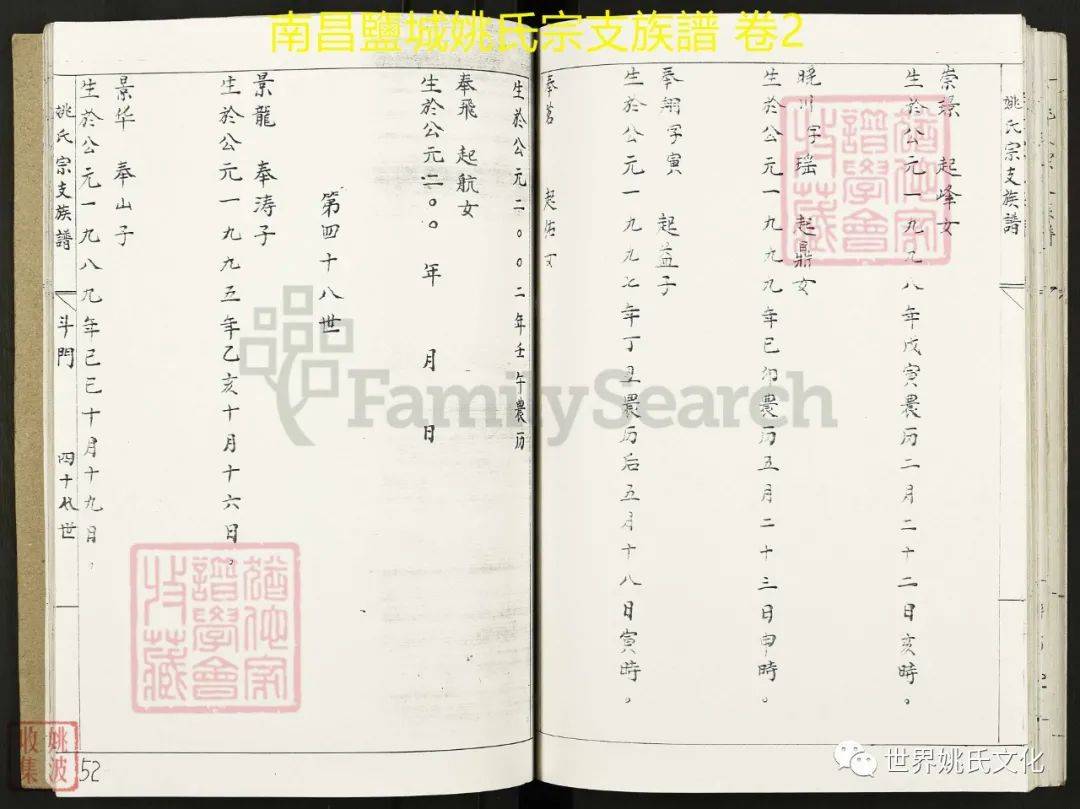 南昌鹽城姚氏宗支族譜 卷2
姚氏宗支族譜
崇璟 起峰女
生於公元一九九八年戊寅農历二月二十二日亥時。
晚川字瑶 起鼎女
生於公元一九九九年己卯農历五月二十三日申時。
奉翔字寅 起益子
生於公元一九九七年丁丑農历后五月十八日寅時。
奉茗 起佑女
生於公元二〇〇二年壬午農历
奉飛 起航女
生於公元二〇〇 年 月 日
第四十八世
景龍 奉涛子
生於公元一九九五年乙亥十月十六日。
景华 奉山子
生於公元一九八九年己巳十月十九日。
姚氏宗支族譜 斗門 四十八世
52
猶他家譜學會收藏
猶他家譜學會收藏
姚波收集
FamilySearch
世界姚氏文化